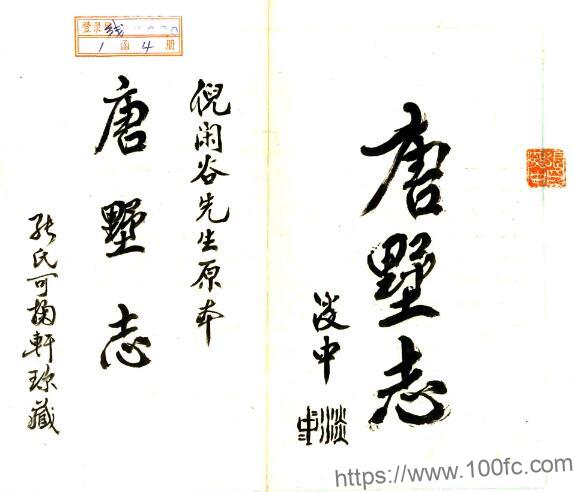 唐墅志
淡中
倪闲谷先生原本
唐墅志
张氏可掬軒珍藏
登录号
1 函 4 册
https://www.100fc.com